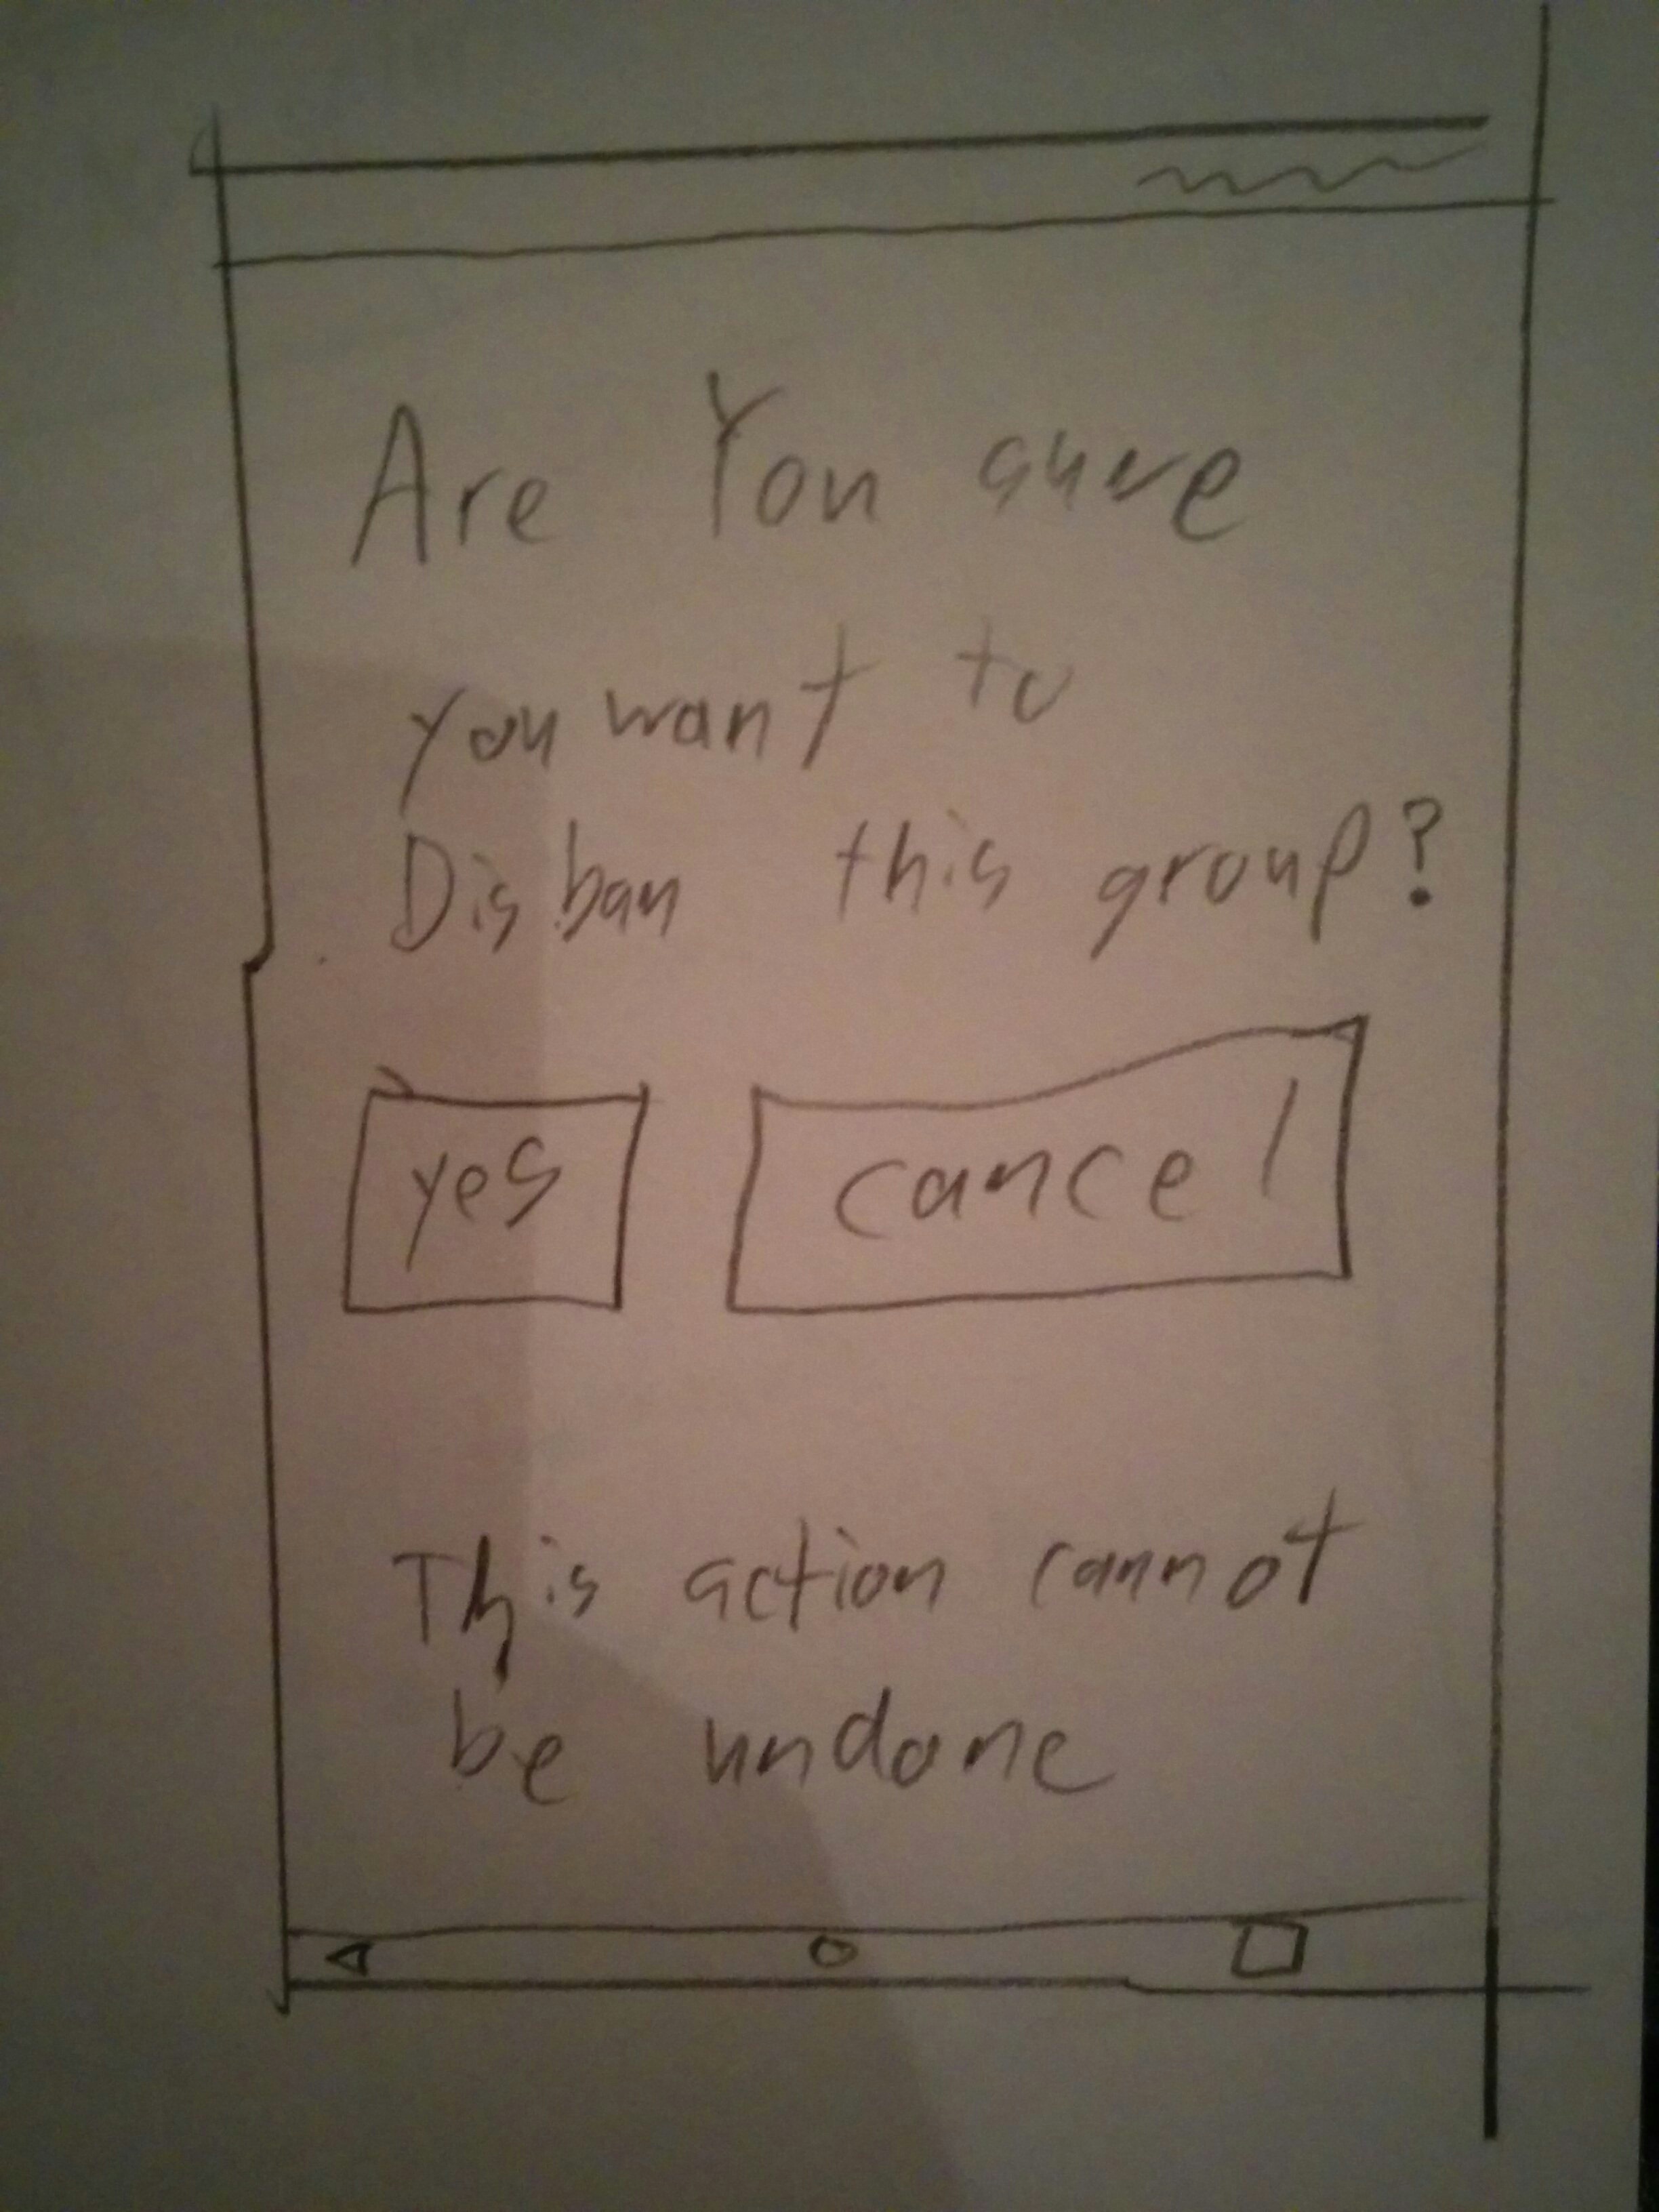 Are You sure
you want to
Disban this group?
yes
cancel
This action cannot
be undone